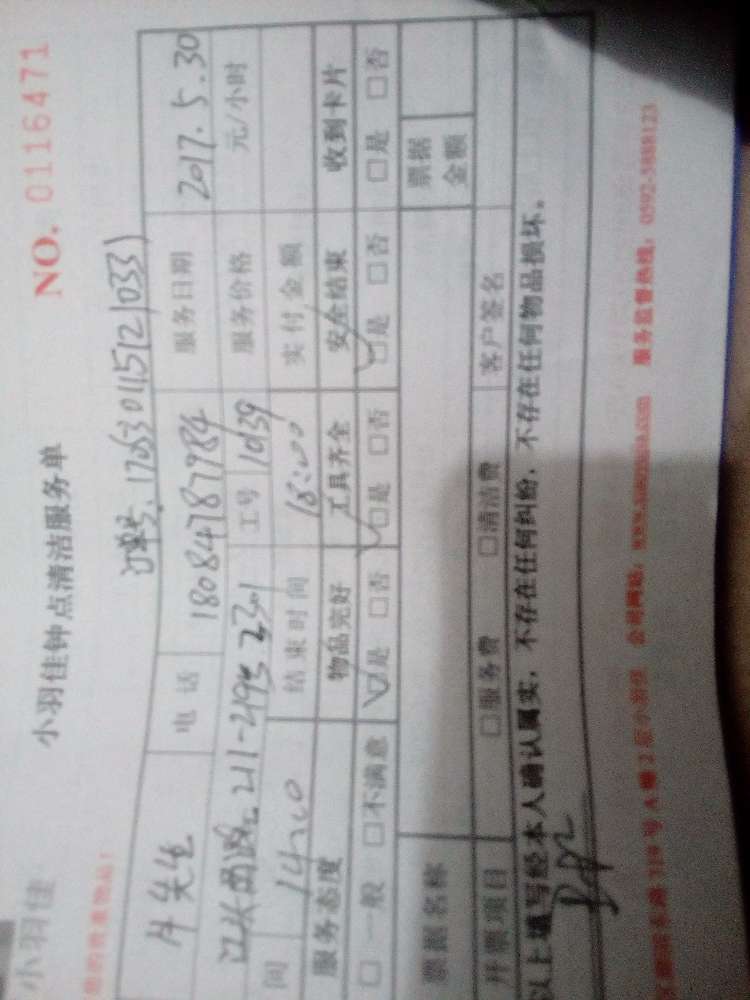 小羽佳
小羽佳钟点清洁服务单
NO. 0116471
您的贵重物品!
订单号:
先生 电话 18084787984 服务日期 2017.5.30
工号 1039 服务价格 元/小时
间 结束时间 18:00 实付金额
服务态度 物品完好 工具齐全 安全结束 收到卡片
□一般 □不满意 □是 □否 □是 □否 □是 □否 □是 □否
票据名称 票据金额
开票项目 □服务费 □清洁费 客户签名
以上填写经本人确认属实,不存在任何纠纷,不存在任何物品损坏。
号A幢2层小羽佳 公司网站: 服务监督热线:0592-5888123